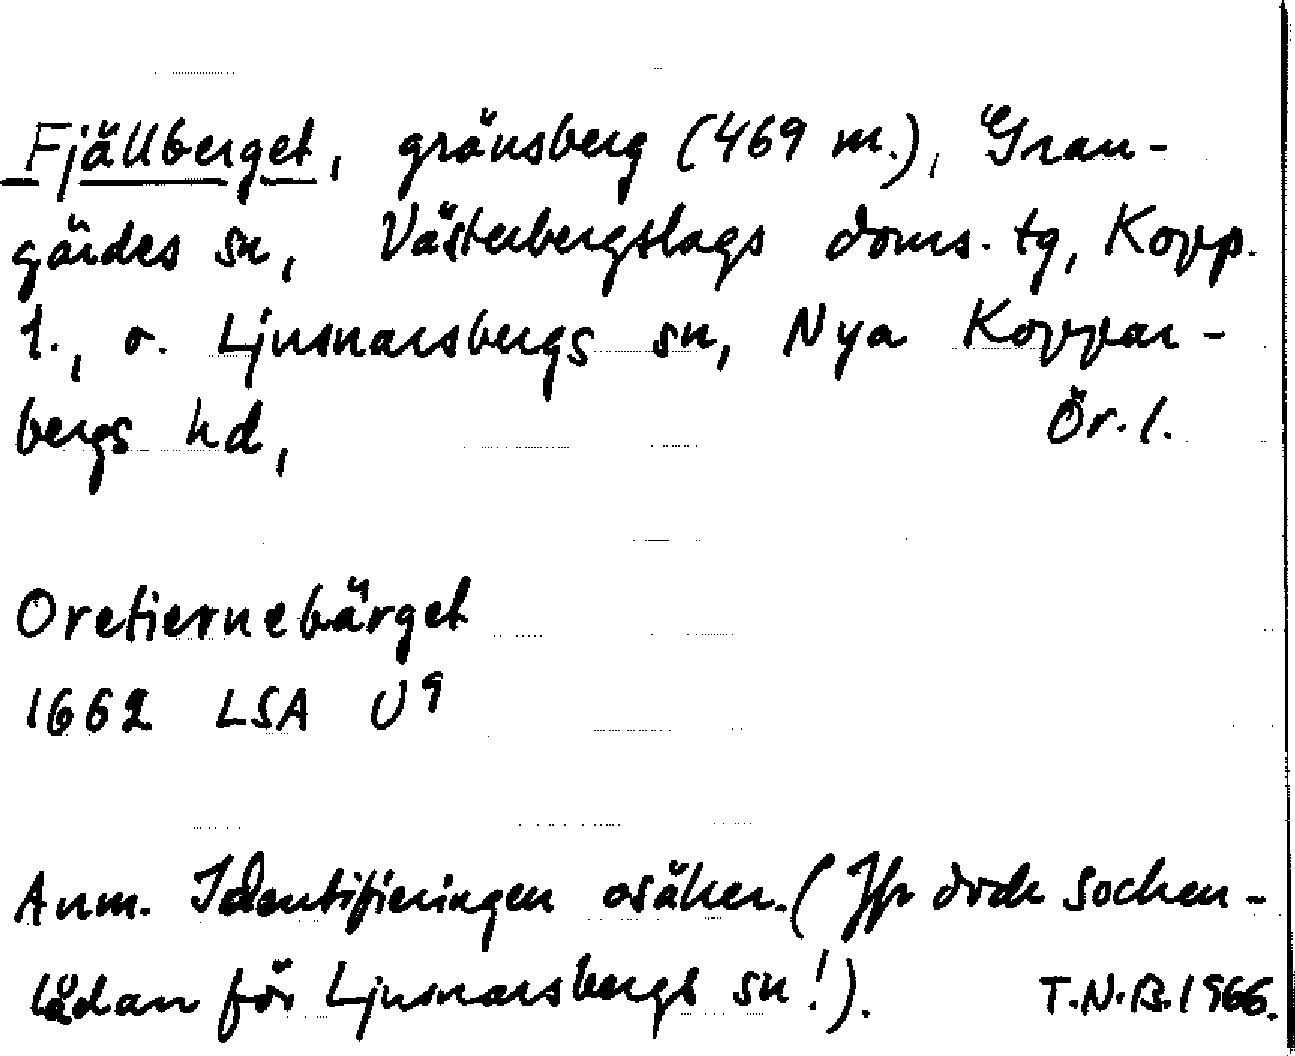 Fjällberget, gränsberg (469 m.), Gran-
gärdes sn, Västerbergslags doms. tg, Kopp.
l., o. Ljusnarsbergs sn, Nya Koppar-
bergs hd, Ör. l.
Oretiernebärget
1662 LSA U9
Anm. Identifieringen osäker. (Jfr dock socken-
lådan för Ljusnarsbergs sn!). T.N.B. 1966.